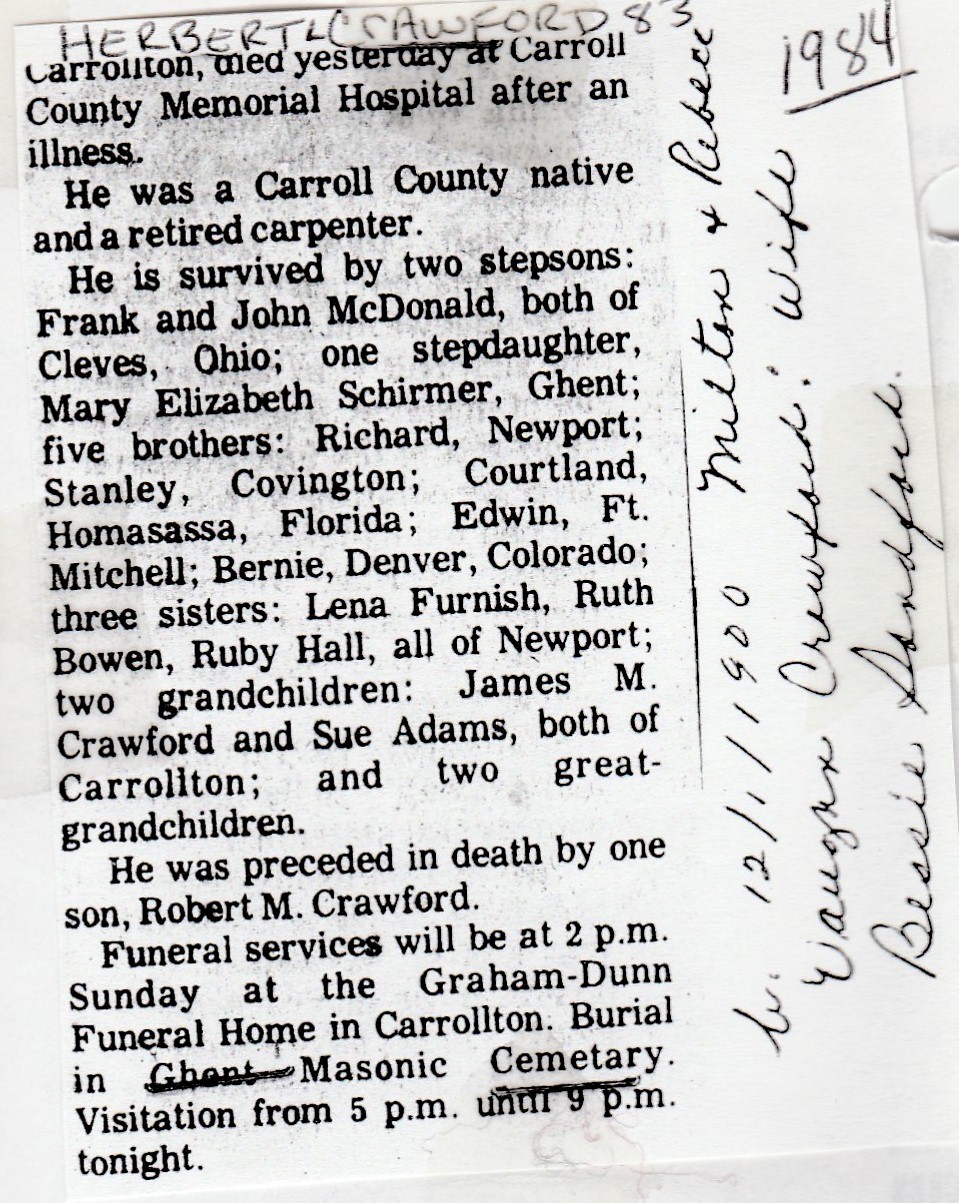 HERBERT L CRAWFORD 83
Carrollton, died yesterday at Carroll
County Memorial Hospital after an
illness.
He was a Carroll County native
and a retired carpenter.
He is survived by two stepsons:
Frank and John McDonald, both of
Cleves, Ohio; one stepdaughter,
Mary Elizabeth Schirmer, Ghent;
five brothers: Richard, Newport;
Stanley, Covington; Courtland,
Homasassa, Florida; Edwin, Ft.
Mitchell; Bernie, Denver, Colorado;
three sisters: Lena Furnish, Ruth
Bowen, Ruby Hall, all of Newport;
two grandchildren: James M.
Crawford and Sue Adams, both of
Carrollton; and two great-
grandchildren.
He was preceded in death by one
son, Robert M. Crawford.
Funeral services will be at 2 p.m.
Sunday at the Graham-Dunn
Funeral Home in Carrollton. Burial
in Ghent Masonic Cemetary.
Visitation from 5 p.m. until 9 p.m.
tonight.
1984
b. 12/1/1900 Milton & Rebecc
Vaughn Crawford: Wife
Bessie Sandford.